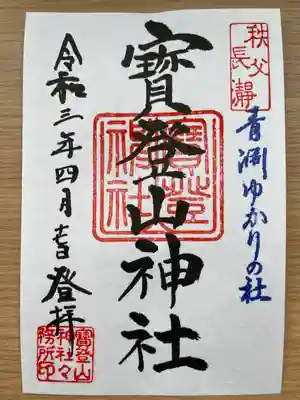 秩父
長瀞
青淵ゆかりの社
寶登山神社
寶登山
神社
令和三年四月 登拝
寶登山
神社々
務所印